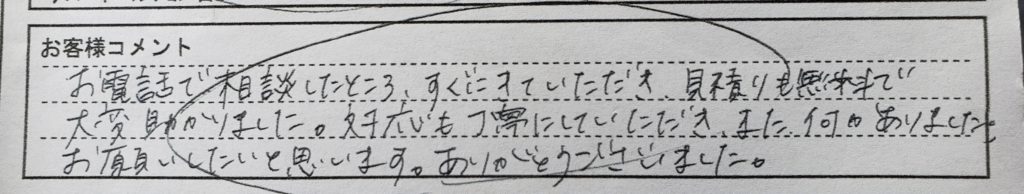 お客様コメント
お電話で相談したところ、すぐにきていただき、見積りも無料で
大変助かりました。対応も丁寧にしていただき、また、何かありましたら
お願いしたいと思います。ありがとうございました。